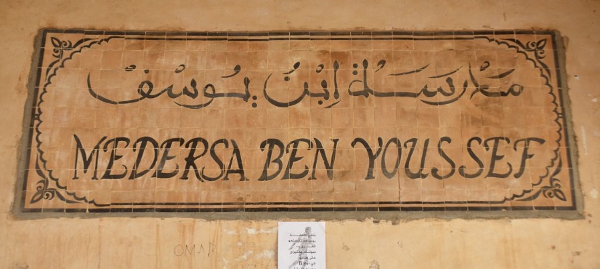 مَدْرَسَة اِبْنُ يُوسُفْ
MEDERSA BEN YOUSSEF
OMAR